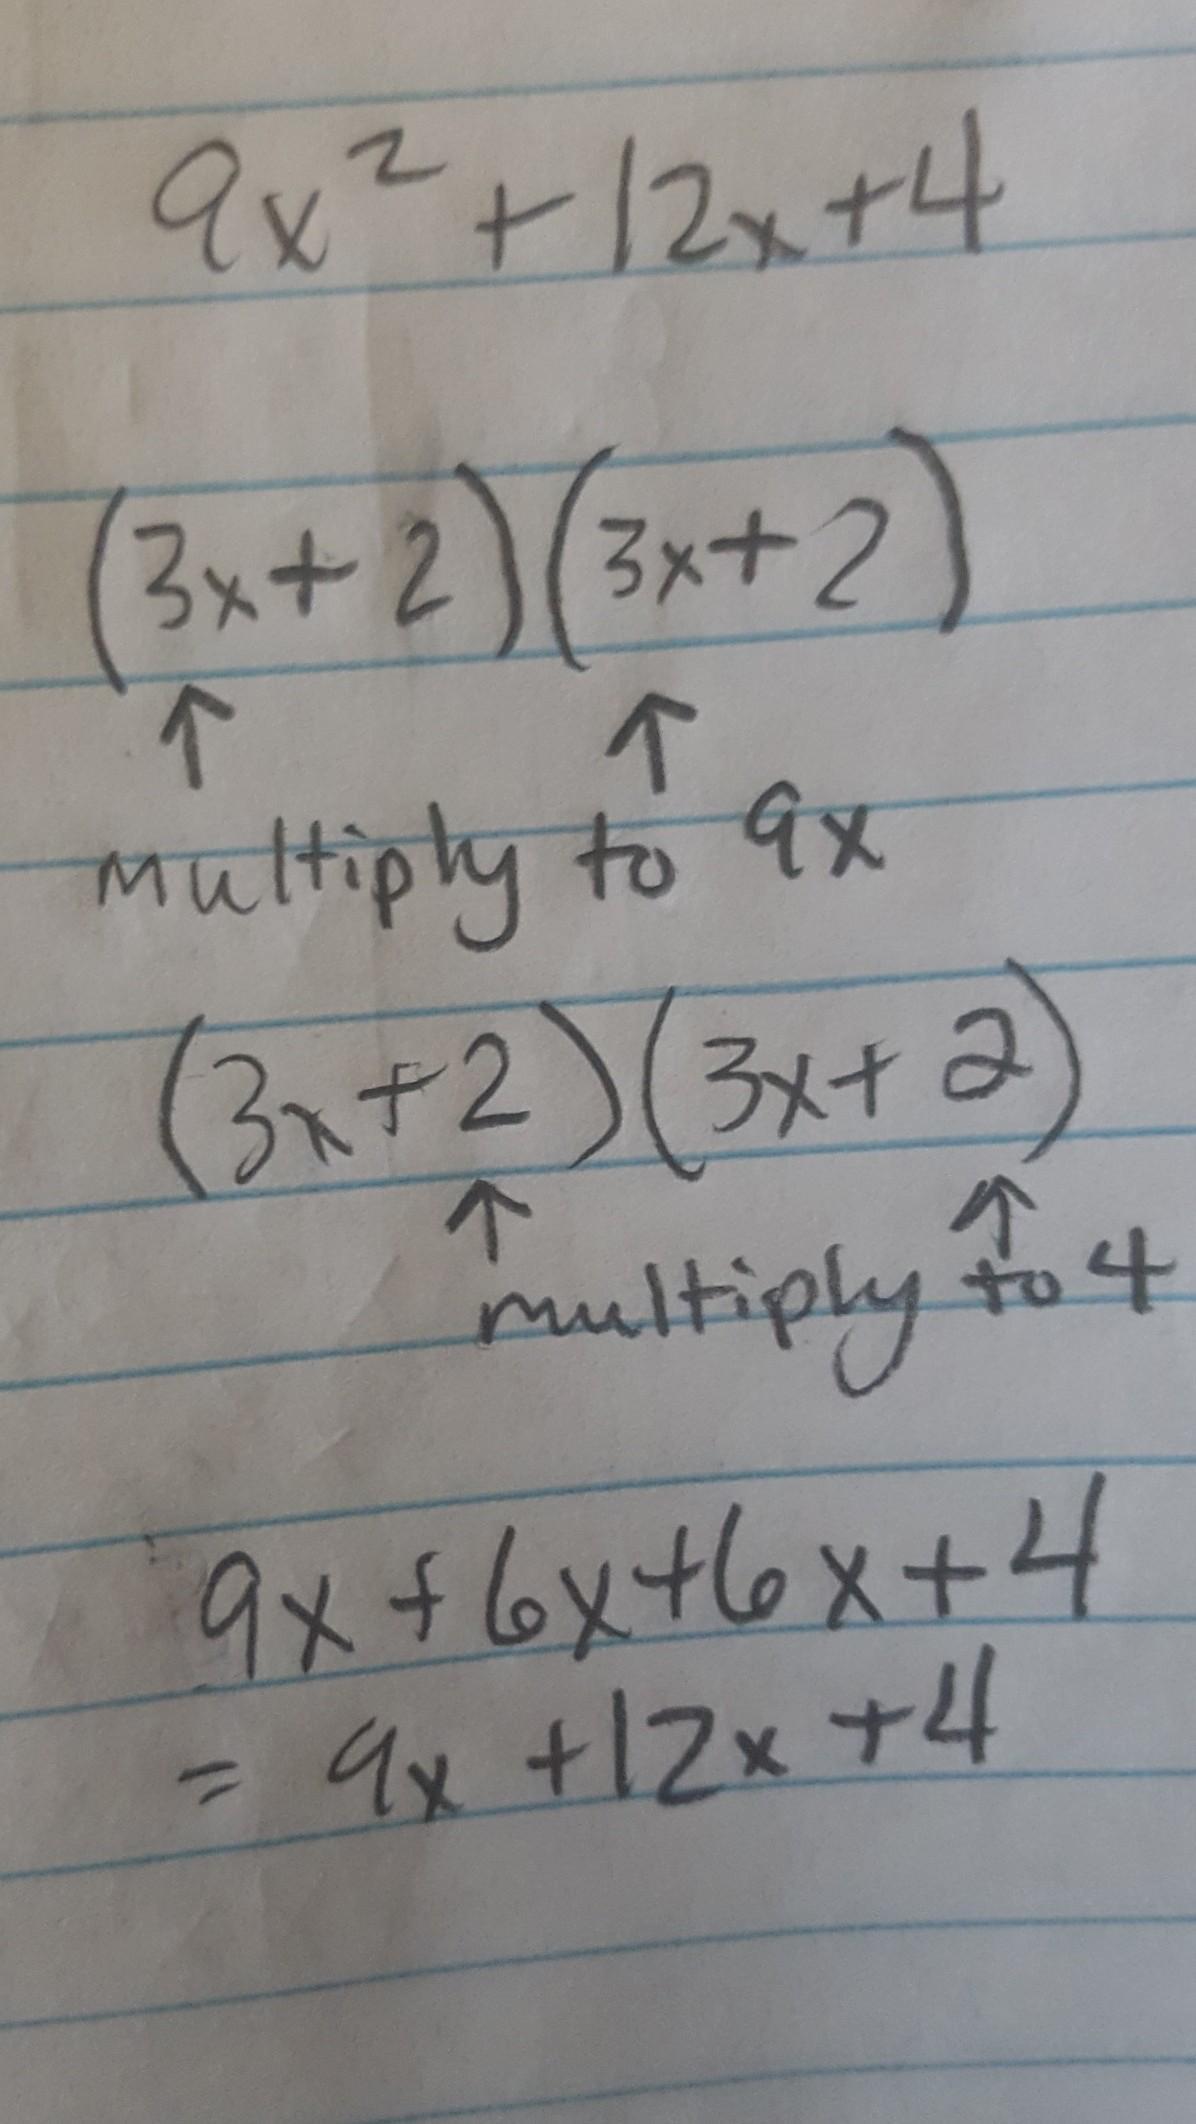 9x² + 12x + 4
(3x + 2)(3x + 2)
↑ ↑
multiply to 9x
(3x + 2)(3x + 2)
↑ ↑
multiply to 4
9x + 6x + 6x + 4
= 9x + 12x + 4